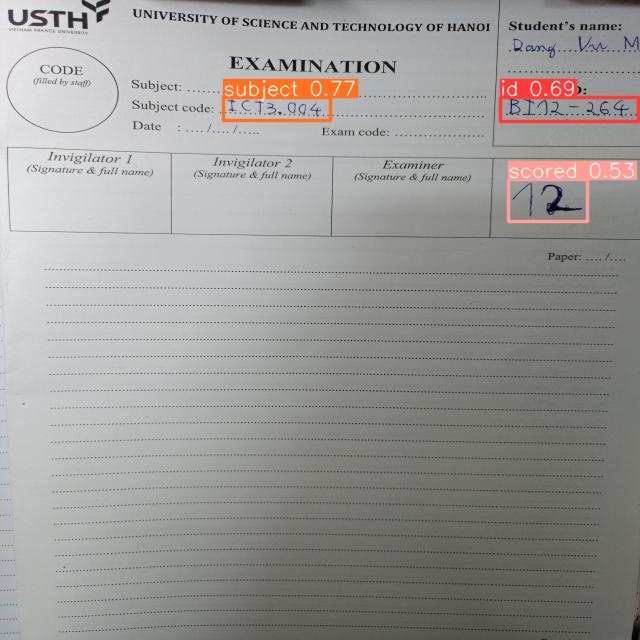 USTH
VIETNAM FRANCE UNIVERSITY
UNIVERSITY OF SCIENCE AND TECHNOLOGY OF HANOI
EXAMINATION
CODE
(filled by staff)
Subject: ......
subject 0.77
Subject code: ICT3.004
Date : .... /.... /.....
Exam code: ........................
Student's name:
Dang Vu M
id 0.69
BI12-264
Invigilator 1
(Signature & full name)
Invigilator 2
(Signature & full name)
Examiner
(Signature & full name)
scored 0.53
12
Paper: .... /....